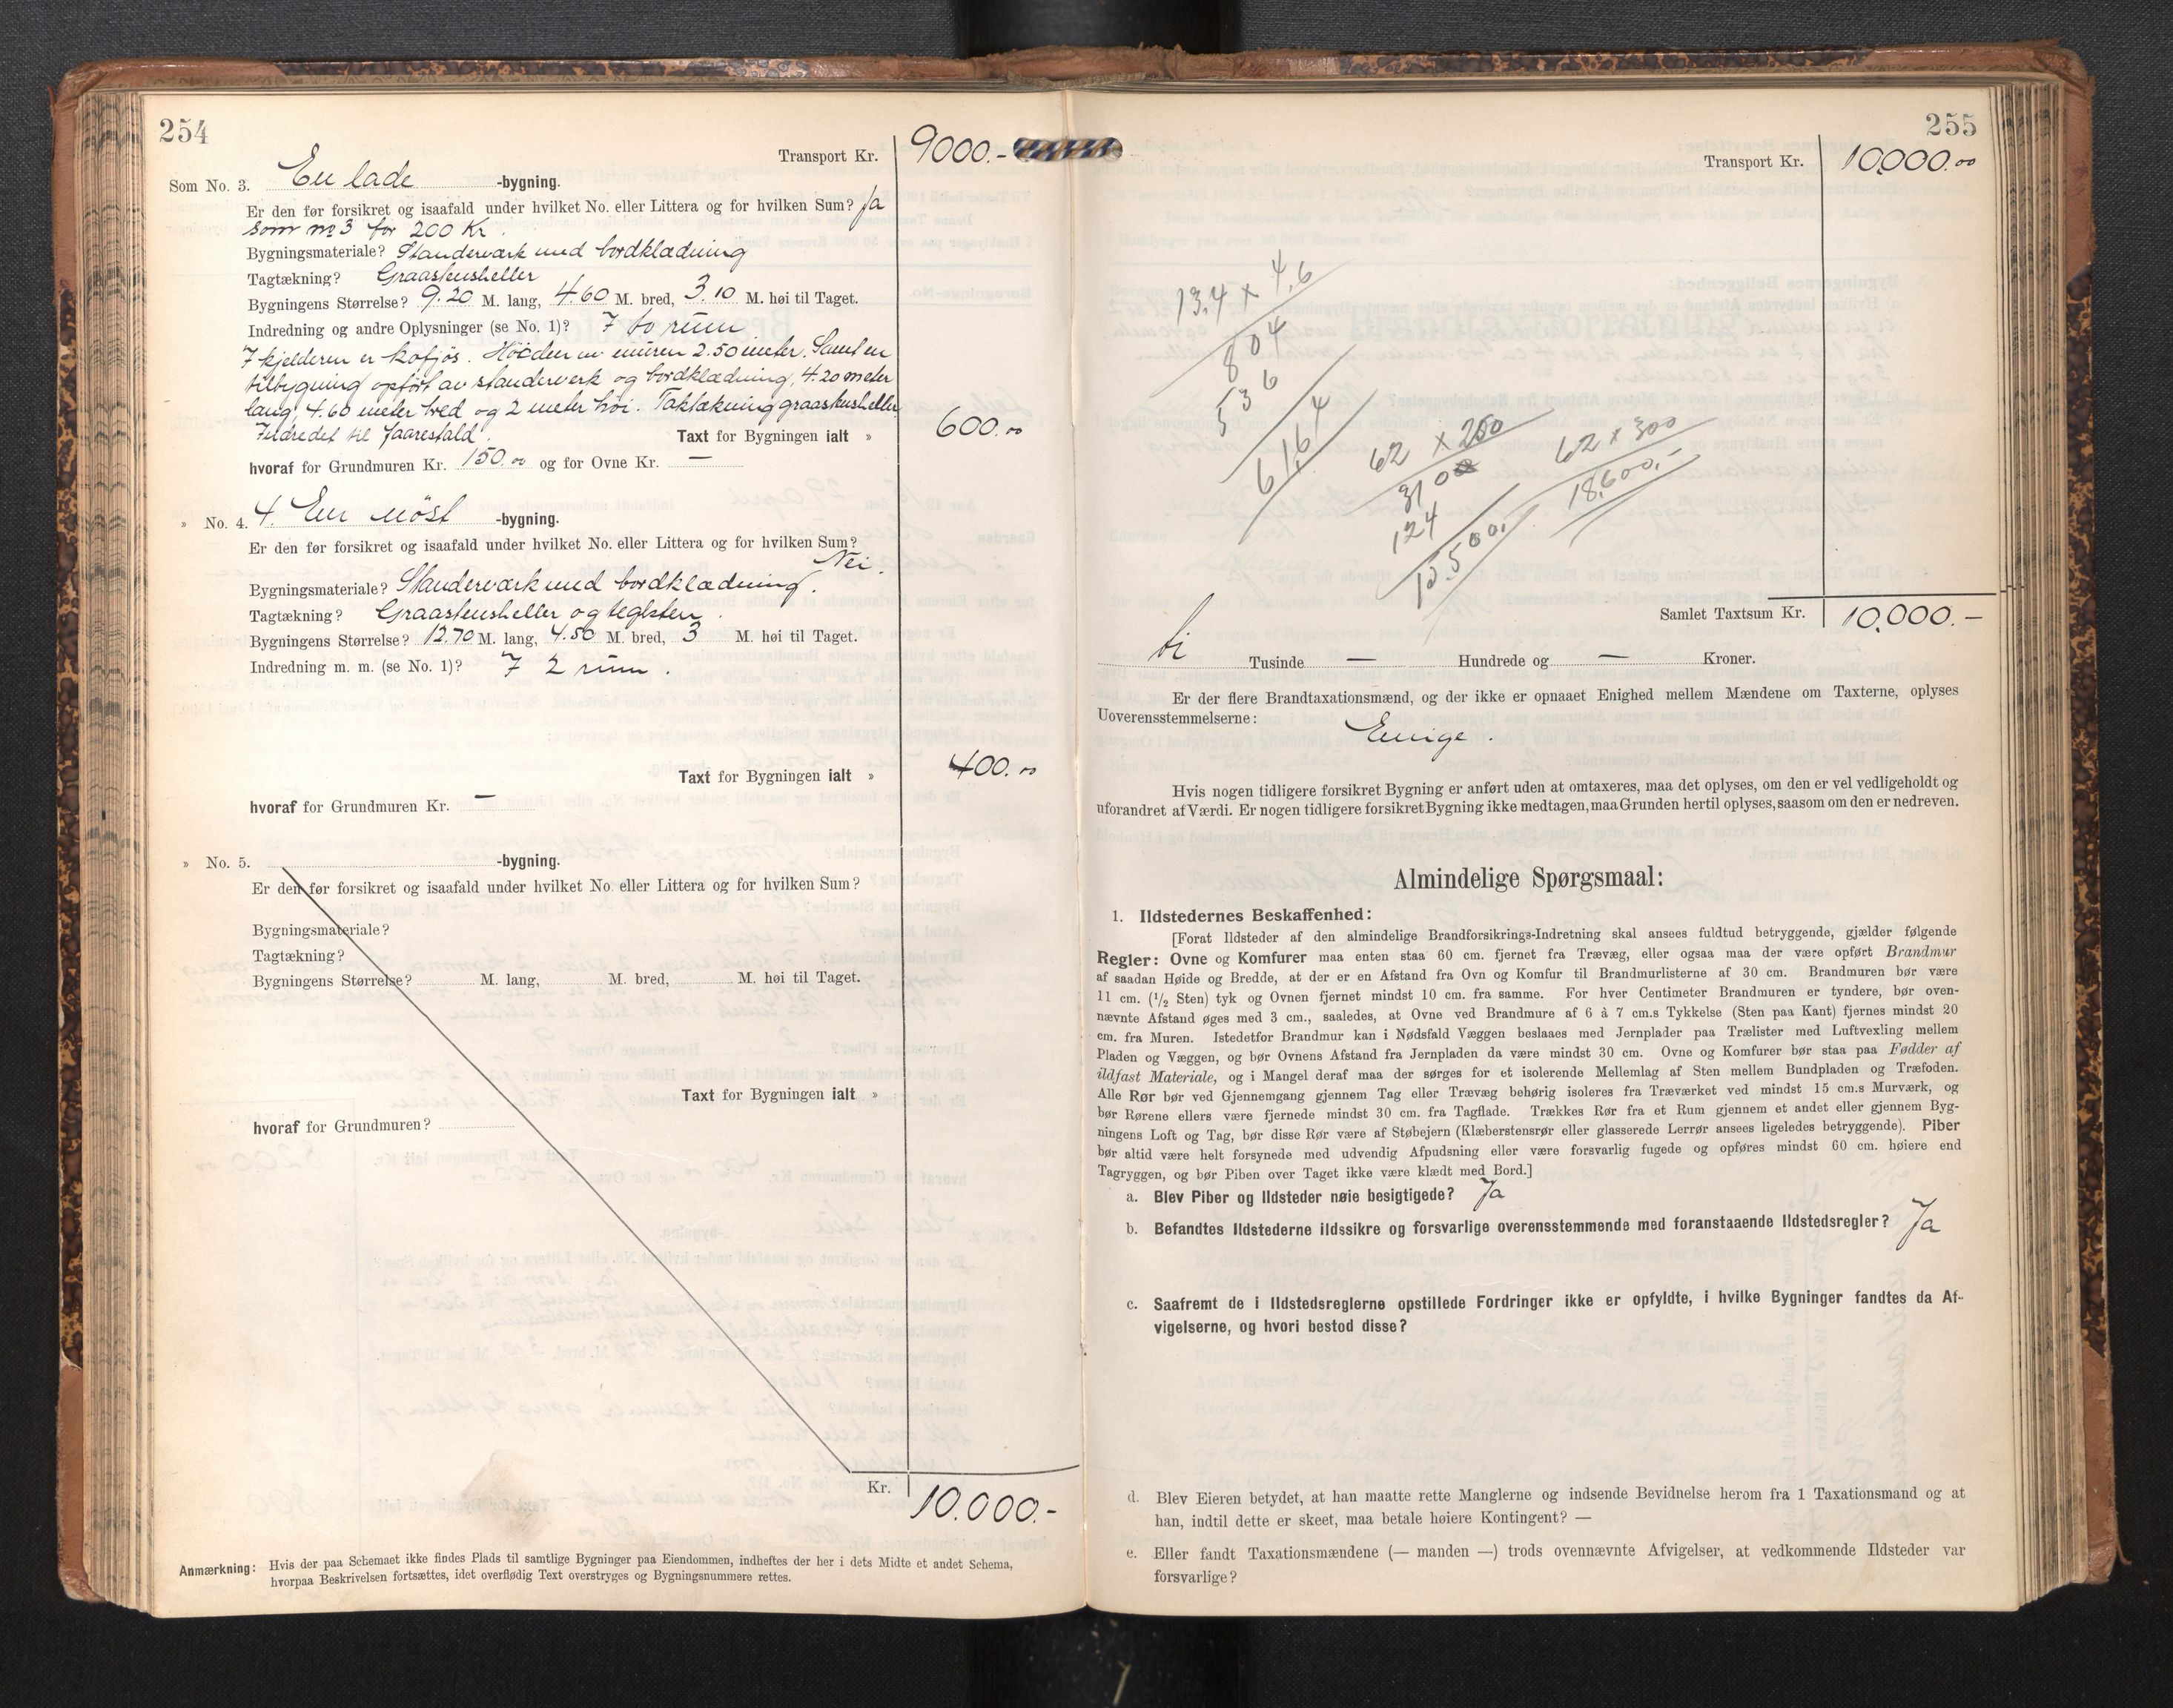 254
Transport Kr. 9000.-
Som No. 3. En lade -bygning.
Er den før forsikret og isaafald under hvilket No. eller Littera og for hvilken Sum? Ja
som no 3 for 200 Kr.
Bygningsmateriale? Standerværk med bordklædning
Tagtækning? Graastensheller
Bygningens Størrelse? 9.20 M. lang, 4.60 M. bred, 3.10 M. høi til Taget.
Indredning og andre Oplysninger (se No. 1)? I to rum
I kjelderen er kofjös. Höiden av muren 2.50 meter. Samt en
tilbygning opfört av standerverk og bordklædning, 4.20 meter
lang, 4.60 meter bred og 2 meter höi. Taktækning graastensheller
Indredet til faarestald.
Taxt for Bygningen ialt » 600.00
hvoraf for Grundmuren Kr. 150.00 og for Ovne Kr. —
» No. 4. 4. En nöst -bygning.
Er den før forsikret og isaafald under hvilket No. eller Littera og for hvilken Sum?
Nei.
Bygningsmateriale? Standerværk med bordklædning.
Tagtækning? Graastensheller og teglsten.
Bygningens Størrelse? 12.70 M. lang, 4.50 M. bred, 3 M. høi til Taget.
Indredning m. m. (se No. 1)? I 2 rum.
Taxt for Bygningen ialt » 400.00
hvoraf for Grundmuren Kr. —
» No. 5. -bygning.
Er den før forsikret og isaafald under hvilket No. eller Littera og for hvilken Sum?
Bygningsmateriale?
Tagtækning?
Bygningens Størrelse? M. lang, M. bred, M. høi til Taget.
Taxt for Bygningen ialt »
hvoraf for Grundmuren?
Kr. 10.000.-
Anmærkning: Hvis der paa Schemaet ikke findes Plads til samtlige Bygninger paa Eiendommen, indheftes der her i dets Midte et andet Schema,
hvorpaa Beskrivelsen fortsættes, idet overflødig Text overstryges og Bygningsnummere rettes.
255
Transport Kr. 10.000.00
13.4 x 4.6
804
536
61.64
62 x 250
3100
124
15.500.
62 x 300
18.600.-
Samlet Taxtsum Kr. 10.000.-
ti Tusinde — Hundrede og — Kroner.
Er der flere Brandtaxationsmænd, og der ikke er opnaaet Enighed mellem Mændene om Taxterne, oplyses
Uoverensstemmelserne: Enige.
Hvis nogen tidligere forsikret Bygning er anført uden at omtaxeres, maa det oplyses, om den er vel vedligeholdt og
uforandret af Værdi. Er nogen tidligere forsikret Bygning ikke medtagen, maa Grunden hertil oplyses, saasom om den er nedreven.
Almindelige Spørgsmaal:
1. Ildstedernes Beskaffenhed:
[Forat Ildsteder af den almindelige Brandforsikrings-Indretning skal ansees fuldtud betryggende, gjælder følgende
Regler: Ovne og Komfurer maa enten staa 60 cm. fjernet fra Trævæg, eller ogsaa maa der være opført Brandmur
af saadan Høide og Bredde, at der er en Afstand fra Ovn og Komfur til Brandmurlisterne af 30 cm. Brandmuren bør være
11 cm. (1/2 Sten) tyk og Ovnen fjernet mindst 10 cm. fra samme. For hver Centimeter Brandmuren er tyndere, bør oven-
nævnte Afstand øges med 3 cm., saaledes, at Ovne ved Brandmure af 6 à 7 cm.s Tykkelse (Sten paa Kant) fjernes mindst 20
cm. fra Muren. Istedetfor Brandmur kan i Nødsfald Væggen beslaaes med Jernplader paa Trælister med Luftvexling mellem
Pladen og Væggen, og bør Ovnens Afstand fra Jernpladen da være mindst 30 cm. Ovne og Komfurer bør staa paa Fødder af
ildfast Materiale, og i Mangel deraf maa der sørges for et isolerende Mellemlag af Sten mellem Bundpladen og Træfoden.
Alle Rør bør ved Gjennemgang gjennem Tag eller Trævæg behørig isoleres fra Træværket ved mindst 15 cm.s Murværk, og
bør Rørene ellers være fjernede mindst 30 cm. fra Tagflade. Trækkes Rør fra et Rum gjennem et andet eller gjennem Byg-
ningens Loft og Tag, bør disse Rør være af Støbejern (Klæberstensrør eller glasserede Lerrør ansees ligeledes betryggende). Piber
bør altid være helt forsynede med udvendig Afpudsning eller være forsvarlig fugede og opføres mindst 60 cm. høiere end
Tagryggen, og bør Piben over Taget ikke være klædt med Bord.]
a. Blev Piber og Ildsteder nøie besigtigede? Ja
b. Befandtes Ildstederne ildssikre og forsvarlige overensstemmende med foranstaaende Ildstedsregler? Ja
c. Saafremt de i Ildstedsreglerne opstillede Fordringer ikke er opfyldte, i hvilke Bygninger fandtes da Af-
vigelserne, og hvori bestod disse?
d. Blev Eieren betydet, at han maatte rette Manglerne og indsende Bevidnelse herom fra 1 Taxationsmand og at
han, indtil dette er skeet, maa betale høiere Kontingent? —
e. Eller fandt Taxationsmændene (— manden —) trods ovennævnte Afvigelser, at vedkommende Ildsteder var
forsvarlige?